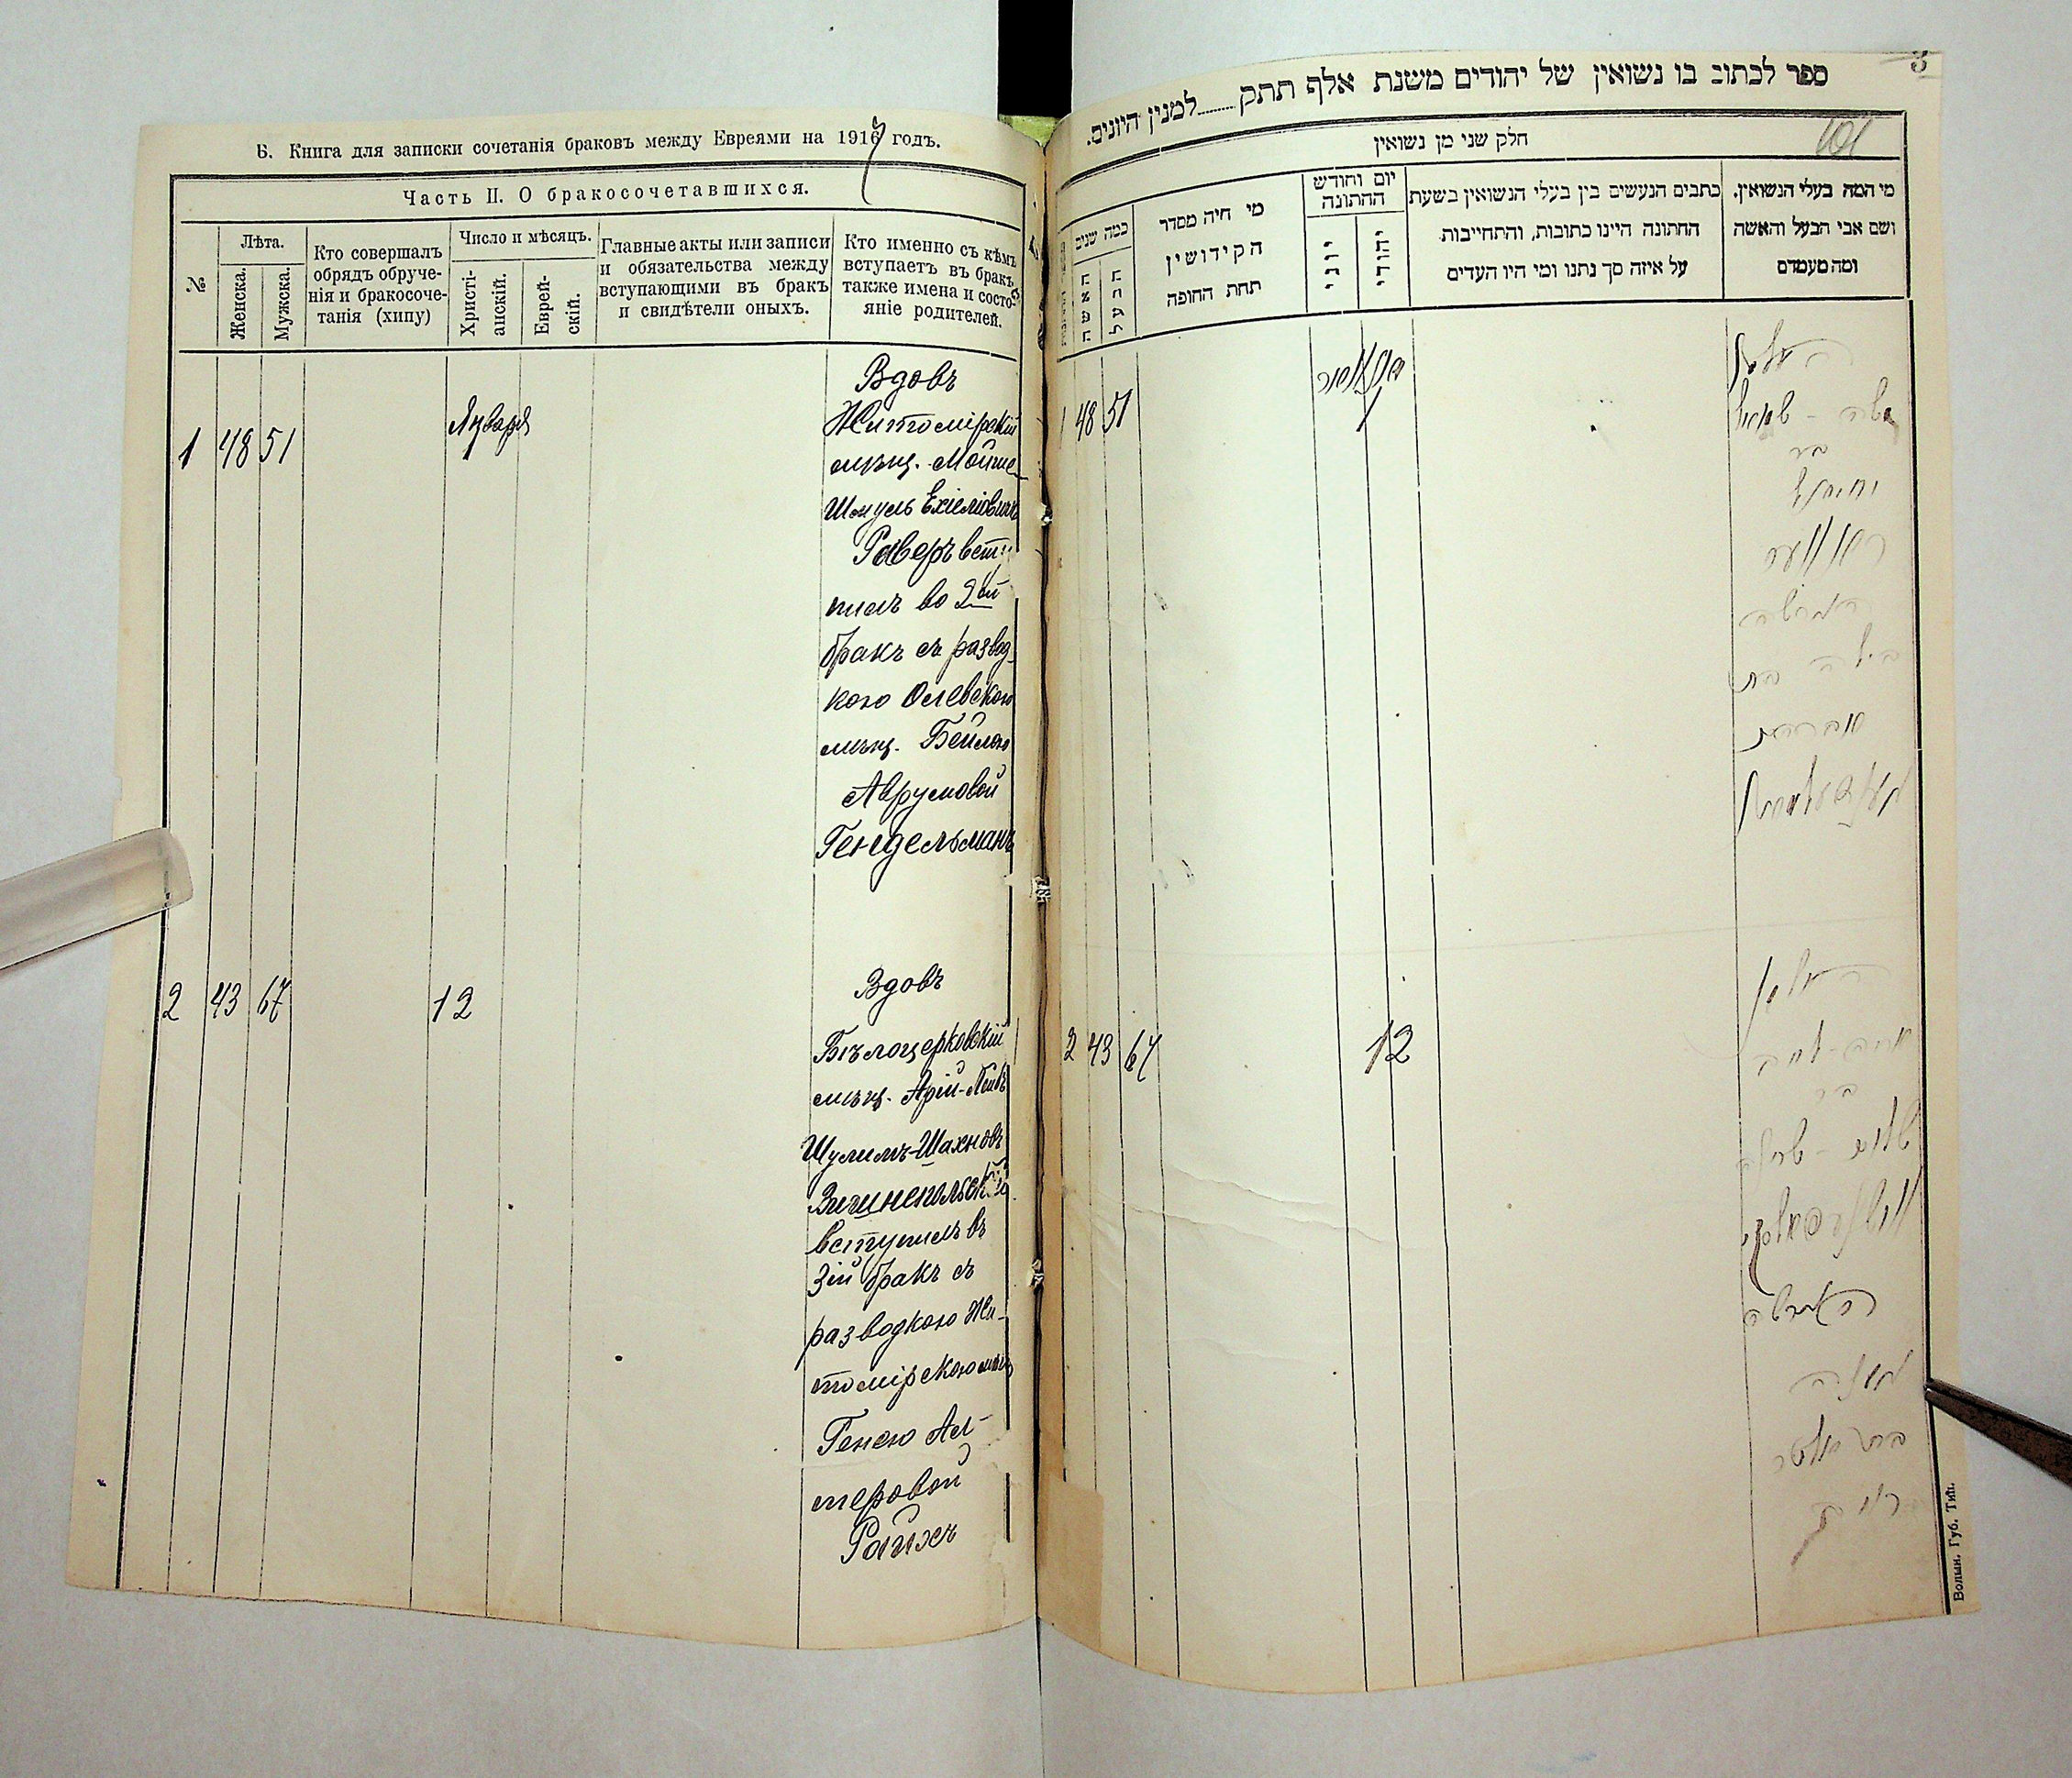 Б. Книга для записки сочетанія браковъ между Евреями на 1917 годъ.
Часть II. О бракосочетавшихся.
№
Лѣта.
Женска.
Мужска.
Кто совершалъ
обрядъ обруче-
нія и бракосоче-
танія (хипу)
Число и мѣсяцъ.
Христі-
анскій.
Еврей-
скій.
Главные акты или записи
и обязательства между
вступающими въ бракъ
и свидѣтели оныхъ.
Кто именно съ кѣмъ
вступаетъ въ бракъ,
также имена и состо-
яніе родителей.
1 48 51
Января
1
Вдовъ
Житомірскій
мѣщ. Мойше
Шмуль Ехіеліовичъ
вступ
пилъ во 2ой
бракъ съ развод-
кою Олевскою
мѣщ. Бейлою
Аврумовой
Гендельманъ
2 43 67
12
Вдовъ
Бѣлоцерковскій
мѣщ. Арій-Лейбъ
Шулимъ-Шахновъ
Вишнепольскій
вступилъ въ
3ій бракъ съ
разводкою Жи-
томірскою мѣщ
Генею Аль-
теровой
Райхъ
3
ספר לכתוב בו נשואין של יהודים משנת אלף תתק........למנין היונים.
101
חלק שני מן נשואין
כמה שנים
האשה
הבעל
מי חיה מסדר
הקידושין
תחת החופה
יום וחודש
החתונה
יוני
יהודי
כתבים הנעשים בין בעלי הנשואין בשעת
החתונה היינו כתובות, והתחייבות
על איזה סך נתנו ומי היו העדים
מי המה בעלי הנשואין.
ושם אבי הבעל והאשה
ומה מעמדם
1 48 51
1
האלמן
משה - שמואל
בר
יחיאל
הגרושה
ביילה בת
אברהם
2 43 67
12
האלמן
אריה-ליב
בר
שלום - שכנא
הגרושה
Волын. Губ. Тип.